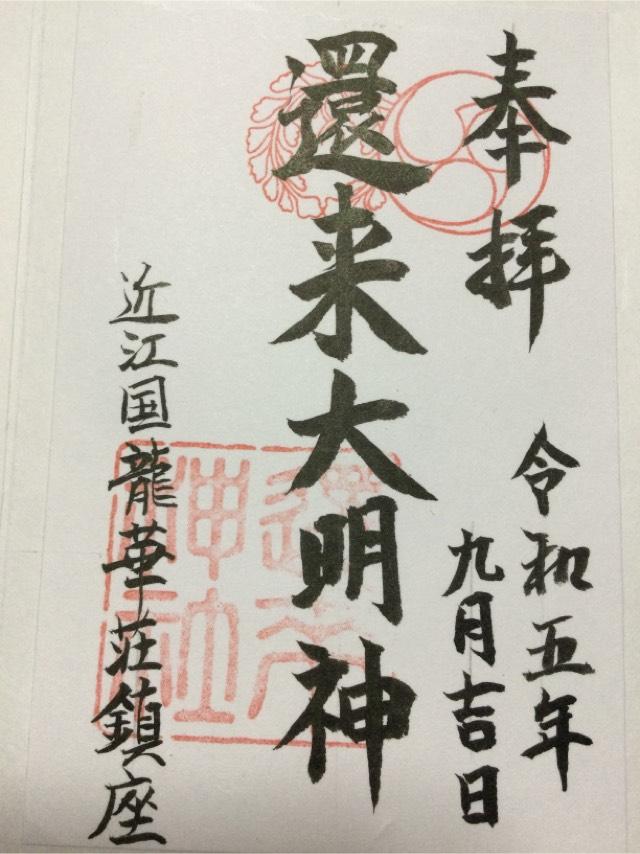 奉拝
令和五年
九月吉日
還来大明神
近江国龍華荘鎮座
還来神社